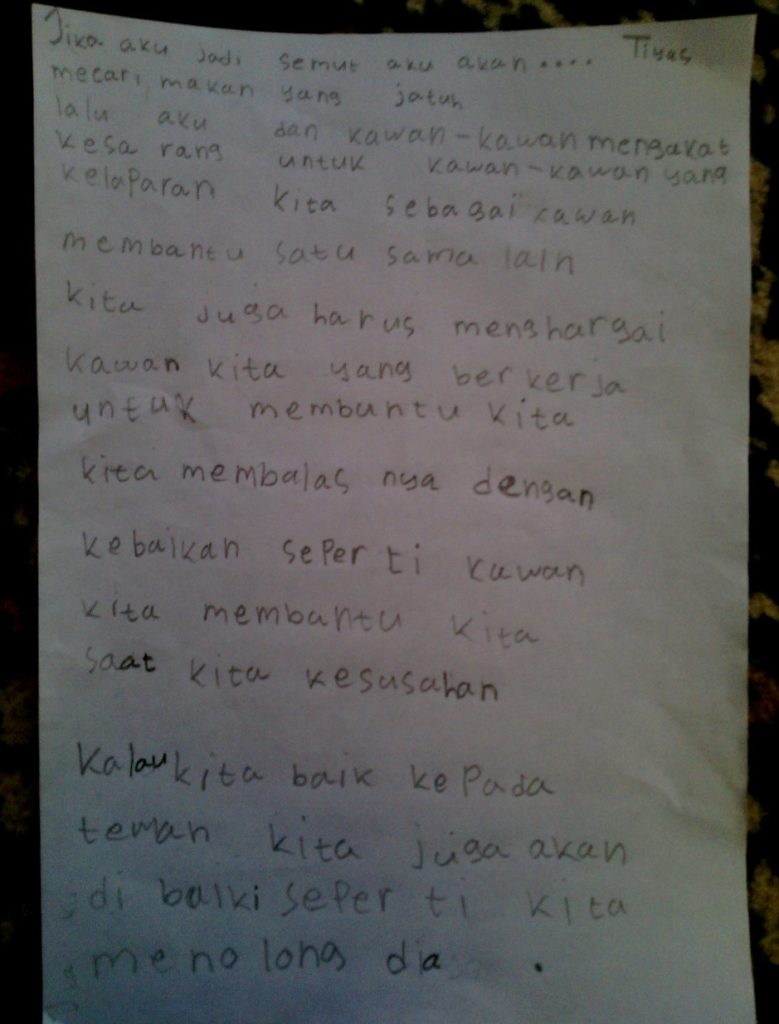 Jika aku jadi semut aku akan.... Tiyas
mecari makan yang jatuh
lalu aku dan kawan-kawan mengakat
kesa rang untuk kawan-kawan yang
kelaparan kita sebagai kawan
membantu satu sama lain
kita juga harus menghargai
kawan kita yang berkerja
untuk membantu kita
kita membalas nya dengan
kebaikan seper ti kawan
kita membantu kita
saat kita kesusahan
Kalau kita baik kepada
teman kita juga akan
di baiki seper ti kita
meno long dia .